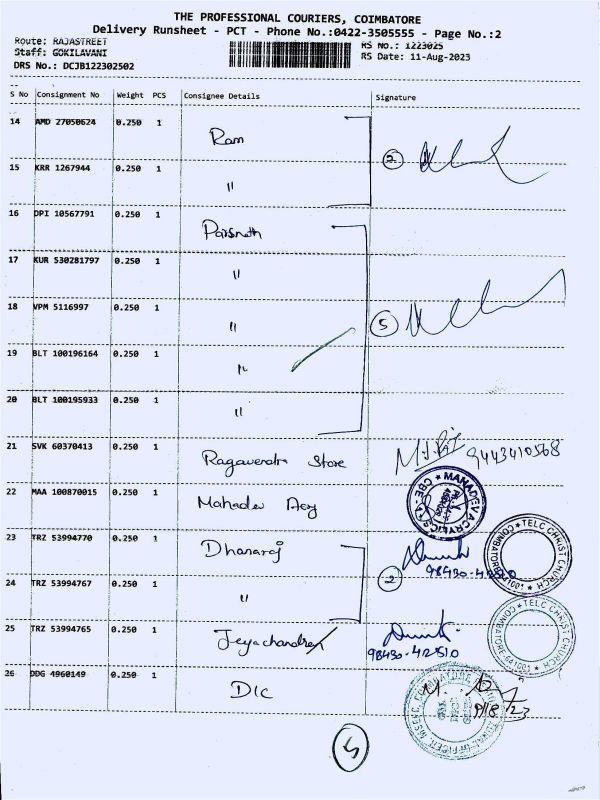 THE PROFESSIONAL COURIERS, COIMBATORE
Delivery Runsheet - PCT - Phone No.:0422-3505555 - Page No.:2
Route: RAJASTREET
RS No.: 1223025
Staff: GOKILAVANI
RS Date: 11-Aug-2023
DRS No.: DCJB122302502
S No Consignment No Weight PCS Consignee Details Signature
14 AMD 27050624 0.250 1 Ram
15 KRR 1267944 0.250 1 "
2
16 DPI 10567791 0.250 1 Parsnath
17 KUR 530281797 0.250 1 "
18 VPM 5116997 0.250 1 "
5
19 BLT 100196164 0.250 1 "
20 BLT 100195933 0.250 1 "
21 SVK 60370413 0.250 1 Ragavendra Store 9443410568
22 MAA 100870015 0.250 1 Mahadev Acry
MAHADEV ACRYLICS CBE
23 TRZ 53994770 0.250 1 Dhanaraj
98430-42510
TELC CHRIST CHURCH COIMBATORE-641001
24 TRZ 53994767 0.250 1 "
2
25 TRZ 53994765 0.250 1 Jeyachandra
98430-42510
TELC CHRIST CHURCH COIMBATORE-641001
26 DDG 4960149 0.250 1 DIC
5